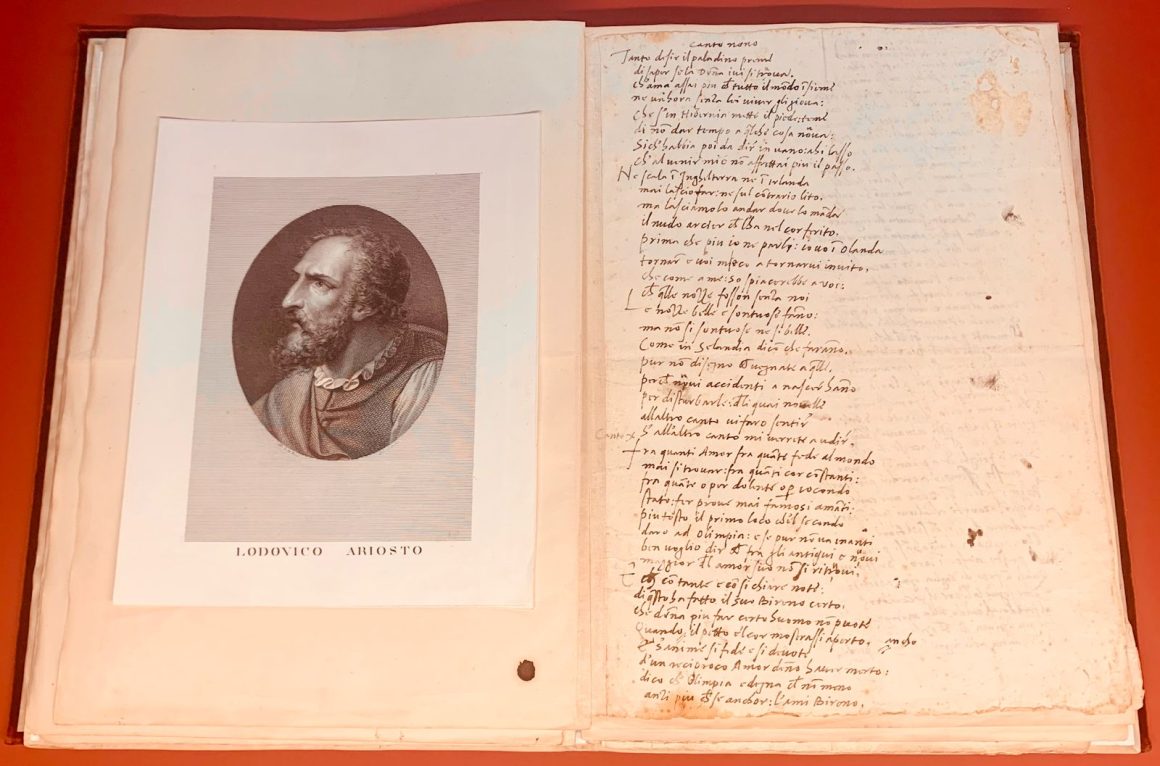 LODOVICO ARIOSTO
Canto nono
Tanto desir il paladino preme
di saper se la Dōna ivi si truova,
ch'ama assai piu ch̄ tutto il mōdo īsieme
ne un hora senza lei viver gli giova:
che s'in Hibernia mette il piede: teme
di nō dar tempo a qlche cosa nuova:
Sich'habbia poi da dir in vano: ahi lasso
ch'al venir mio nō affrettai piu il passo.
Ne scala ī Inghilterra ne ī Irlanda
mai lascio far: ne sul cōtrario lito.
ma lasciamolo andar dove lo māda
il nudo arcier ch̄ l'ha nel cor ferito.
prima che piu io ne parli: io vo ī Olanda
tornar e voi meco a tornarvi invito,
che come a me: so spiacerebbe a voi:
ch̄ qlle nozze fosson senza noi
Le nozze belle e sontuose fano:
ma nō si sontuose ne si belle.
Come in Selandia dicō che farano.
pur nō disegno ch̄ vegnate a qlle.
perch̄ nuovi accidenti a nascer hāno
per disturbarle: ch̄ li quai novelle
all'altro canto vi faro sentir
S'all'altro canto mi verrete a udir.
Canto X
Fra quanti Amor fra quāte fede al mondo
mai si trovar: fra quāti cor cōstanti:
fra quāte o per dolente o p̄ iocondo
stato: fer prove mai famosi amāti:
piu tosto il primo loco ch'il secondo
daro ad Olimpia: e se pur nō va inanti
ben voglio dir ch̄ fra gli antiqui e nuovi
maggior ch̄l amor suo nō si ritruovi.
E ch̄ cō tante e cō si chiare note:
di qsto ha fatto il suo Bireno certo.
che dōna piu far certo huomo nō puote
quando il petto e'l cor mostrassi aperto. ancho
E s'anime si fide e si devote
d'un reciproco Amor dēno haver merto:
dico ch̄ Olimpia e degna ch̄ nō meno
anzi piu ch̄ se anchor: l'ami Bireno.